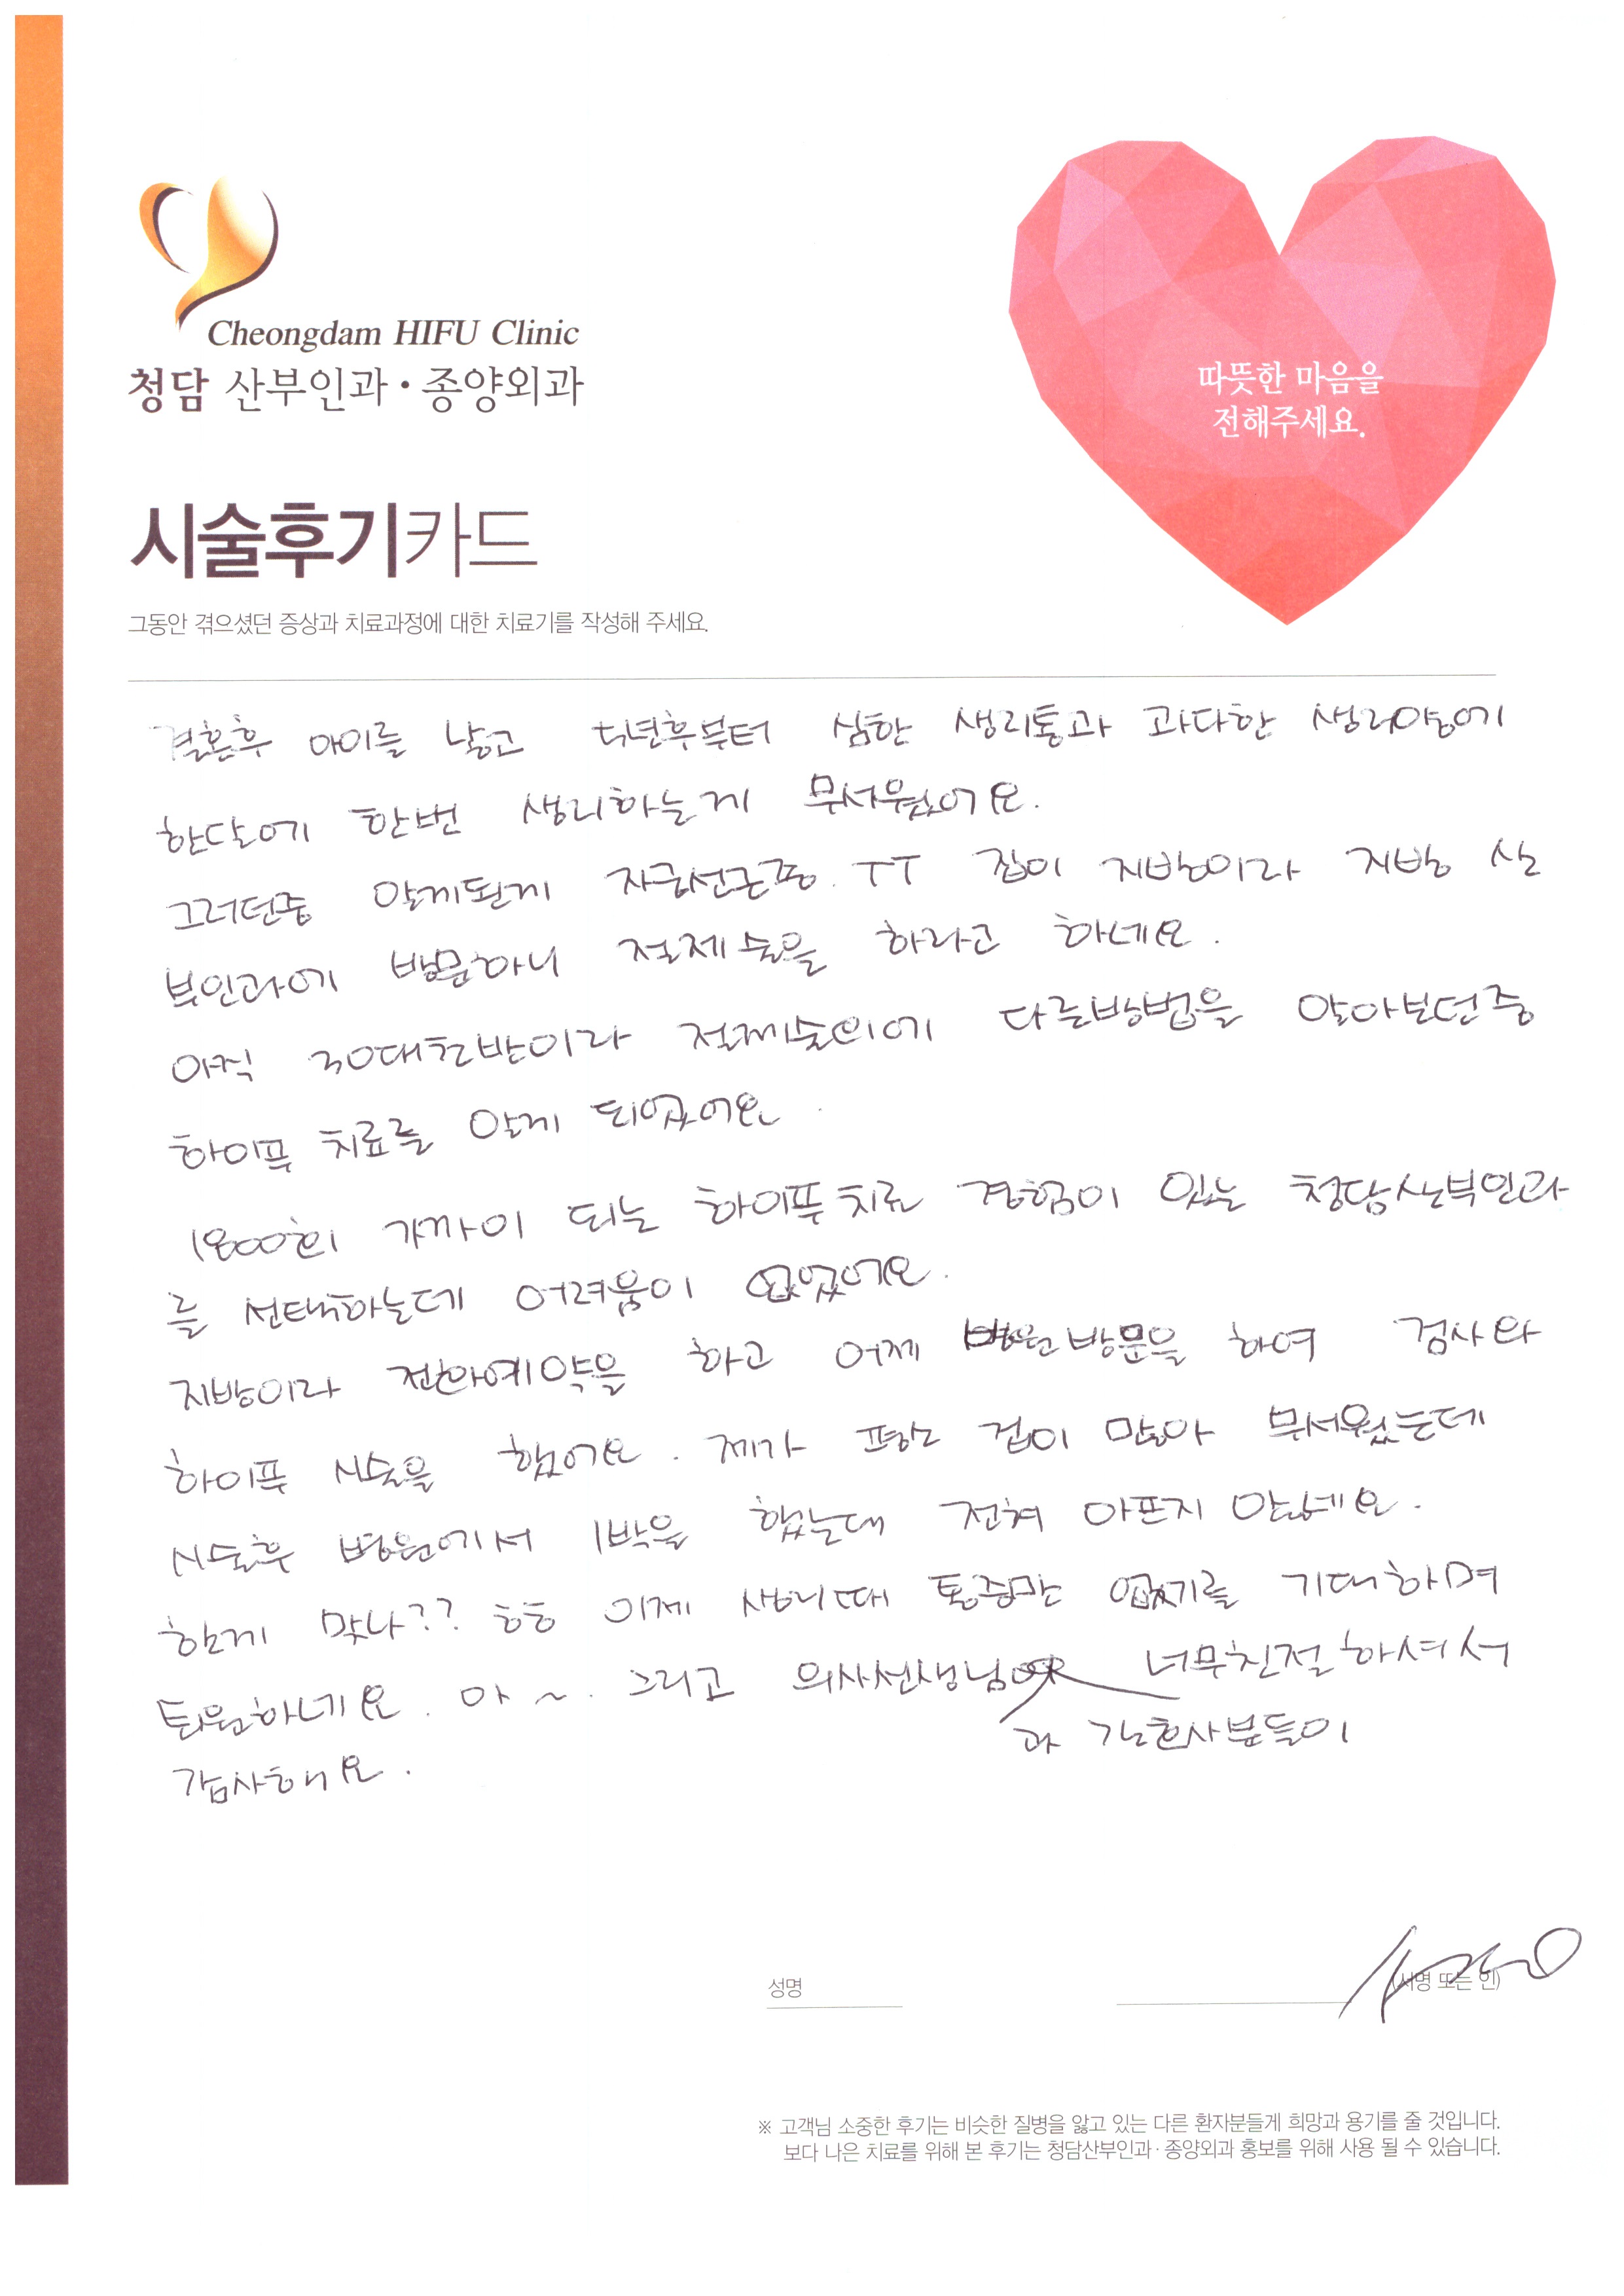 Cheongdam HIFU Clinic
청담 산부인과 • 종양외과
따뜻한 마음을
전해주세요.
시술후기카드
그동안 겪으셨던 증상과 치료과정에 대한 치료기를 작성해 주세요.
결혼후 아이를 낳고 년후부터 심한 생리통과 과다한 생리양에
한달에 한번 생리하는게 무서웠어요.
그러던중 알게된게 자궁선근증. TT 집이 지방이라 지방 산
부인과에 방문하니 절제술을 하라고 하네요.
아직 30대초반이라 절제술외에 다른방법을 알아보던중
하이푸 치료를 알게 되었어요.
1800회 가까이 되는 하이푸치료 경험이 있는 청담산부인과
를 선택하는데 어려움이 없었어요.
지방이라 전화예약을 하고 어제 병원방문을 하여 검사와
하이푸 시술을 했어요. 제가 평소 겁이 많아 무서웠는데
시술후 병원에서 1박을 했는대 전혀 아프지 않네요.
한게 맞나?? ㅎㅎ 이제 생리때 통증만 없기를 기대하며
퇴원하네요. 아~. 그리고 의사선생님 너무친절하셔서
과 간호사분들이
감사해요.
성명
(서명 또는 인)
※ 고객님 소중한 후기는 비슷한 질병을 앓고 있는 다른 환자분들게 희망과 용기를 줄 것입니다.
보다 나은 치료를 위해 본 후기는 청담산부인과· 종양외과 홍보를 위해 사용 될 수 있습니다.